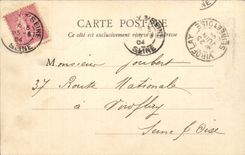 CARTE POSTALE
Ce côté est exclusivement réservé à l'adresse
SEINE
04
VIROFLAY
Monsieur Joubert
37 Route Nationale
à Viroflay
Seine & Oise